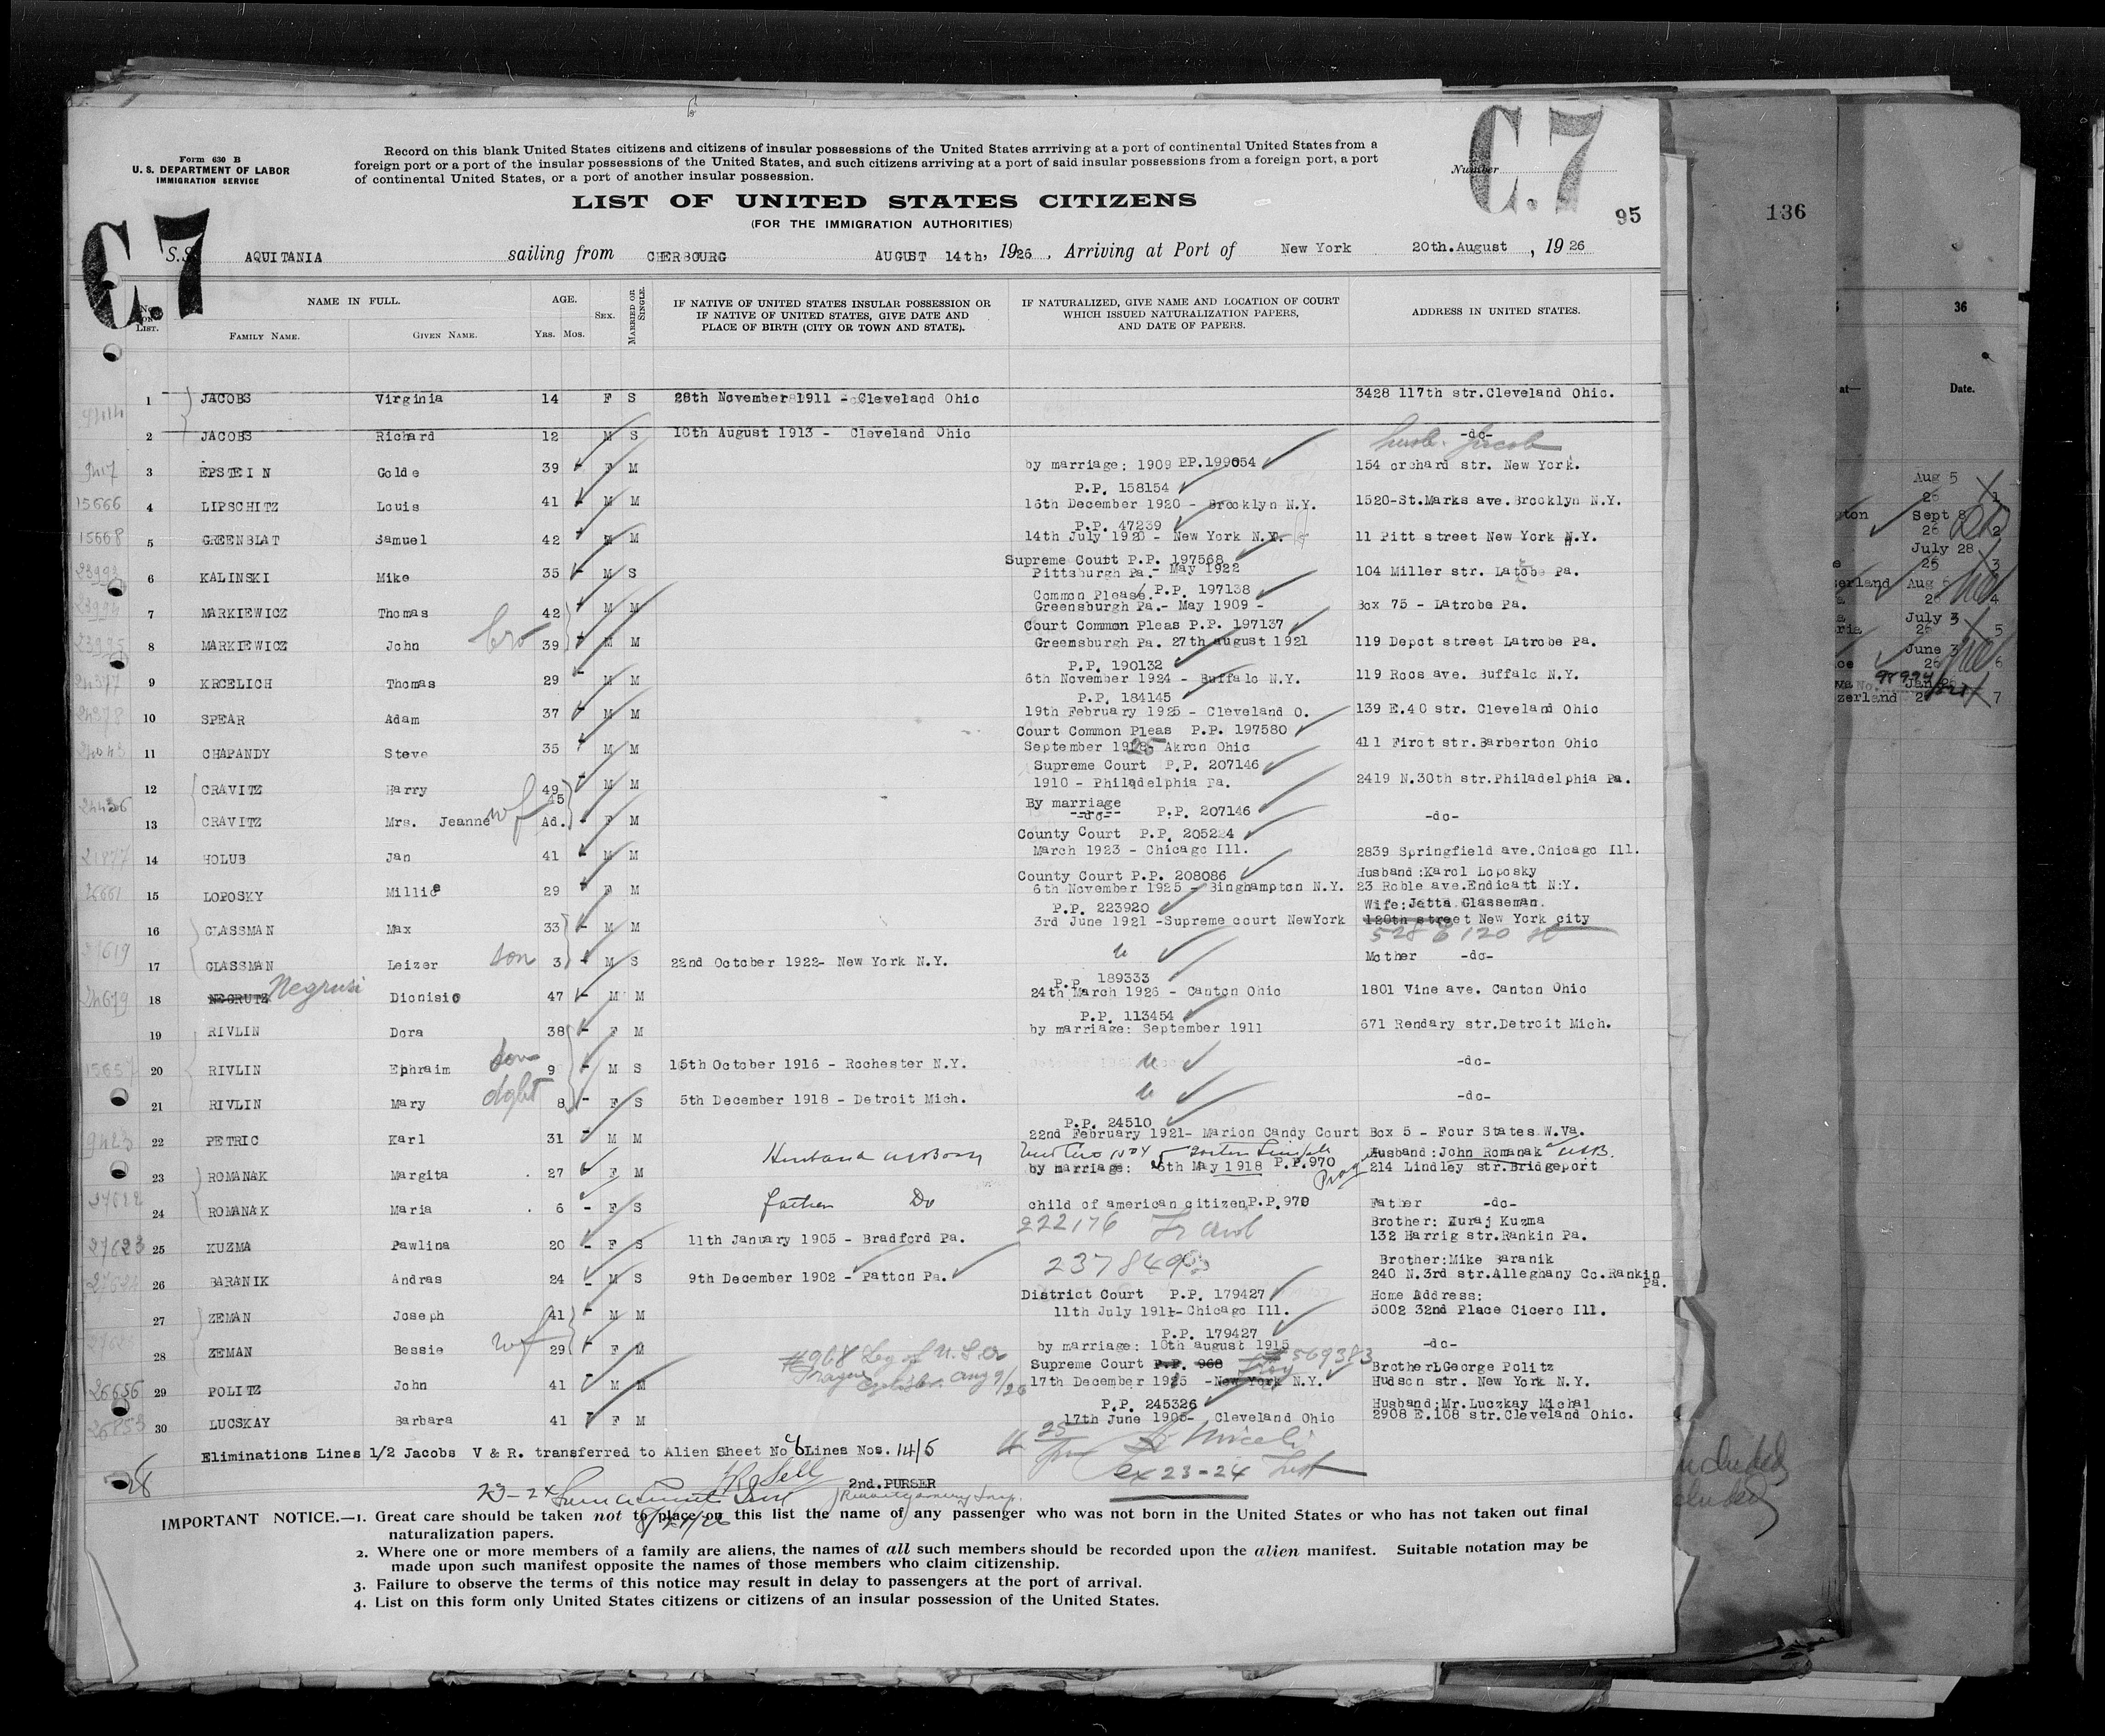 C.7
C.7
Form 630 B
U. S. DEPARTMENT OF LABOR
IMMIGRATION SERVICE
Record on this blank United States citizens and citizens of insular possessions of the United States arrriving at a port of continental United States from a
foreign port or a port of the insular possessions of the United States, and such citizens arriving at a port of said insular possessions from a foreign port, a port
of continental United States, or a port of another insular possession.
Number
LIST OF UNITED STATES CITIZENS
(FOR THE IMMIGRATION AUTHORITIES)
95
136
S.S. AQUITANIA sailing from CHERBOURG AUGUST 14th, 1926, Arriving at Port of New York 20th.August, 1926
No. on List.
NAME IN FULL. AGE. Sex. MARRIED OR SINGLE.
FAMILY NAME. GIVEN NAME. Yrs. Mos.
IF NATIVE OF UNITED STATES INSULAR POSSESSION OR
IF NATIVE OF UNITED STATES, GIVE DATE AND
PLACE OF BIRTH (CITY OR TOWN AND STATE).
IF NATURALIZED, GIVE NAME AND LOCATION OF COURT
WHICH ISSUED NATURALIZATION PAPERS,
AND DATE OF PAPERS.
ADDRESS IN UNITED STATES.
1 JACOBS Virginia 14 F S 28th November 1911 - Cleveland Ohio 3428 117th str.Cleveland Ohio.
2 JACOBS Richard 12 M S 10th August 1913 - Cleveland Ohio -do-
husb. Jacob
3 EPSTEIN Golde 39 F M by marriage: 1909 P.P.199054 154 orchard str. New York.
P.P. 158154
4 LIPSCHITZ Louis 41 M M 16th December 1920 - Brooklyn N.Y. 1520-St.Marks ave.Brooklyn N.Y.
P.P. 47239
5 GREENBLAT Samuel 42 M M 14th July 1920 - New York N.Y. 11 Pitt street New York N.Y.
Supreme Court P.P. 197568
6 KALINSKI Mike 35 M S Pittsburgh Pa.- May 1922 104 Miller str. Latobe Pa.
Common Please P.P. 197138
7 MARKIEWICZ Thomas 42 M M Greensburgh Pa.- May 1909 - Box 75 - Latrobe Pa.
Court Common Pleas P.P. 197137
8 MARKIEWICZ John bro 39 M M Greensburgh Pa. 27th august 1921 119 Depot street Latrobe Pa.
P.P. 190132
9 KRCELICH Thomas 29 M M 6th November 1924 - Buffalo N.Y. 119 Roos ave. Buffalo N.Y.
P.P. 184145
10 SPEAR Adam 37 M M 19th February 1925 - Cleveland O. 139 E.40 str. Cleveland Ohio
Court Common Pleas P.P. 197580
11 CHAPANDY Steve 35 M M September 1925 Akron Ohio 411 First str.Barberton Ohio
Supreme Court P.P. 207146
12 CRAVITZ Harry 49 M M 1910 - Philadelphia Pa. 2419 N.30th str.Philadelphia Pa.
By marriage
13 CRAVITZ Mrs. Jeanne wf 45 Ad. F M -do- P.P. 207146 -do-
County Court P.P. 205224
14 HOLUB Jan 41 M M March 1923 - Chicago Ill. 2839 Springfield ave.Chicago Ill.
County Court P.P. 208086 Husband:Karol Loposky
15 LOPOSKY Millie 29 F M 6th November 1925 - Binghampton N.Y. 23 Roble ave.Endicatt N.Y.
P.P. 223920 Wife:Jetta Glasseman.
16 GLASSMAN Max 33 M M 3rd June 1921 -Supreme court NewYork 120th street New York city
528 E 120 st
17 GLASSMAN Leizer son 3 M S 22nd October 1922- New York N.Y. Mother -do-
P.P. 189333
18 NEGRUTZ Negrusi Dionisio 47 M M 24th March 1926 - Canton Ohio 1801 Vine ave. Canton Ohio
P.P. 113454
19 RIVLIN Dora 38 F M by marriage: September 1911 671 Rendary str.Detroit Mich.
20 RIVLIN Ephraim son 9 M S 15th October 1916 - Rochester N.Y. -do-
21 RIVLIN Mary dght 8 F S 5th December 1918 - Detroit Mich. -do-
P.P. 24510
22 PETRIC Karl 31 M M 22nd February 1921- Marion Candy Court Box 5 - Four States W.Va.
Husband Husband:John Romanak
23 ROMANAK Margita 27 F M by marriage: 6th May 1918 P.P.970 214 Lindley str.Bridgeport
24 ROMANAK Maria 6 F S father Do child of american citizen P.P.970 Father -do-
222176 Brother: Kuraj Kuzma
25 KUZMA Pawlina 20 F S 11th January 1905 - Bradford Pa. 132 Harrig str.Rankin Pa.
237849 Brother:Mike Baranik
26 BARANIK Andras 24 M S 9th December 1902 - Patton Pa. 240 N.3rd str.Alleghany Co.Rankin Pa.
District Court P.P. 179427 Home Address:
27 ZEMAN Joseph 41 M M 11th July 1911-Chicago Ill. 5002 32nd Place Cicero Ill.
P.P. 179427
28 ZEMAN Bessie wf 29 F M by marriage: 10th august 1915 -do-
#968 Leg of U.S. Supreme Court P.P. 968 #569383 Brother:George Politz
29 POLITZ John 41 M M Prague Aug 9/26 17th December 1925 -New York N.Y. Troy Hudson str. New York N.Y.
P.P. 245326 Husband:Mr.Luczkay Michal
30 LUCSKAY Barbara 41 F M 17th June 1905- Cleveland Ohio 2908 E.108 str.Cleveland Ohio.
Eliminations Lines 1/2 Jacobs V & R. transferred to Alien Sheet No 6 Lines Nos. 14/5
28
25
ex 23-24
2nd.PURSER
23-24
8/21/26
IMPORTANT NOTICE.—1. Great care should be taken not to place on this list the name of any passenger who was not born in the United States or who has not taken out final
naturalization papers.
2. Where one or more members of a family are aliens, the names of all such members should be recorded upon the alien manifest. Suitable notation may be
made upon such manifest opposite the names of those members who claim citizenship.
3. Failure to observe the terms of this notice may result in delay to passengers at the port of arrival.
4. List on this form only United States citizens or citizens of an insular possession of the United States.
36
at— Date.
Aug 5
26 1
Sept 8
26 2
July 28
26 3
Aug 6
26 4
July 3
26 5
June 3
26 6
Jan 26
zerland 26 7